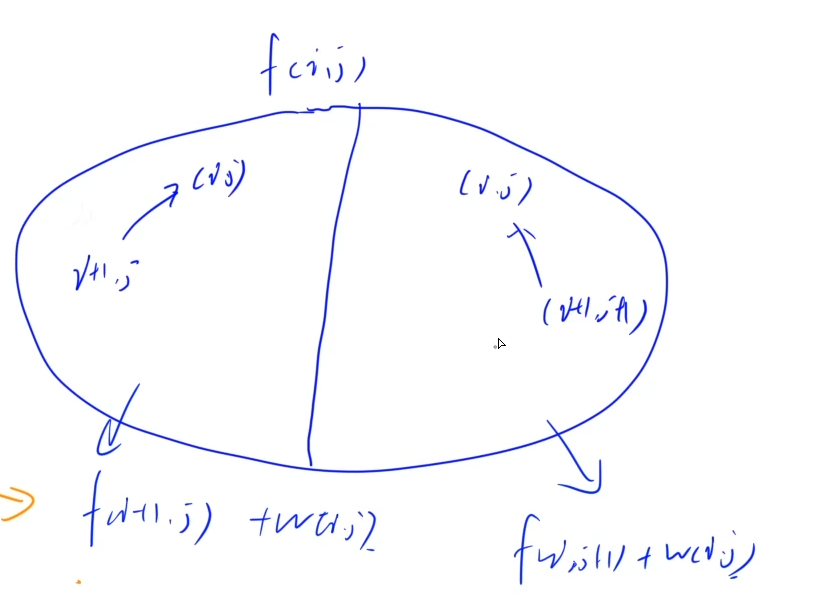 f(i,j)
(i,j)
(i,j)
i+1,j
(i+1,j+1)
f(i+1,j) +w(i,j)
f(i,j+1)+w(i,j)